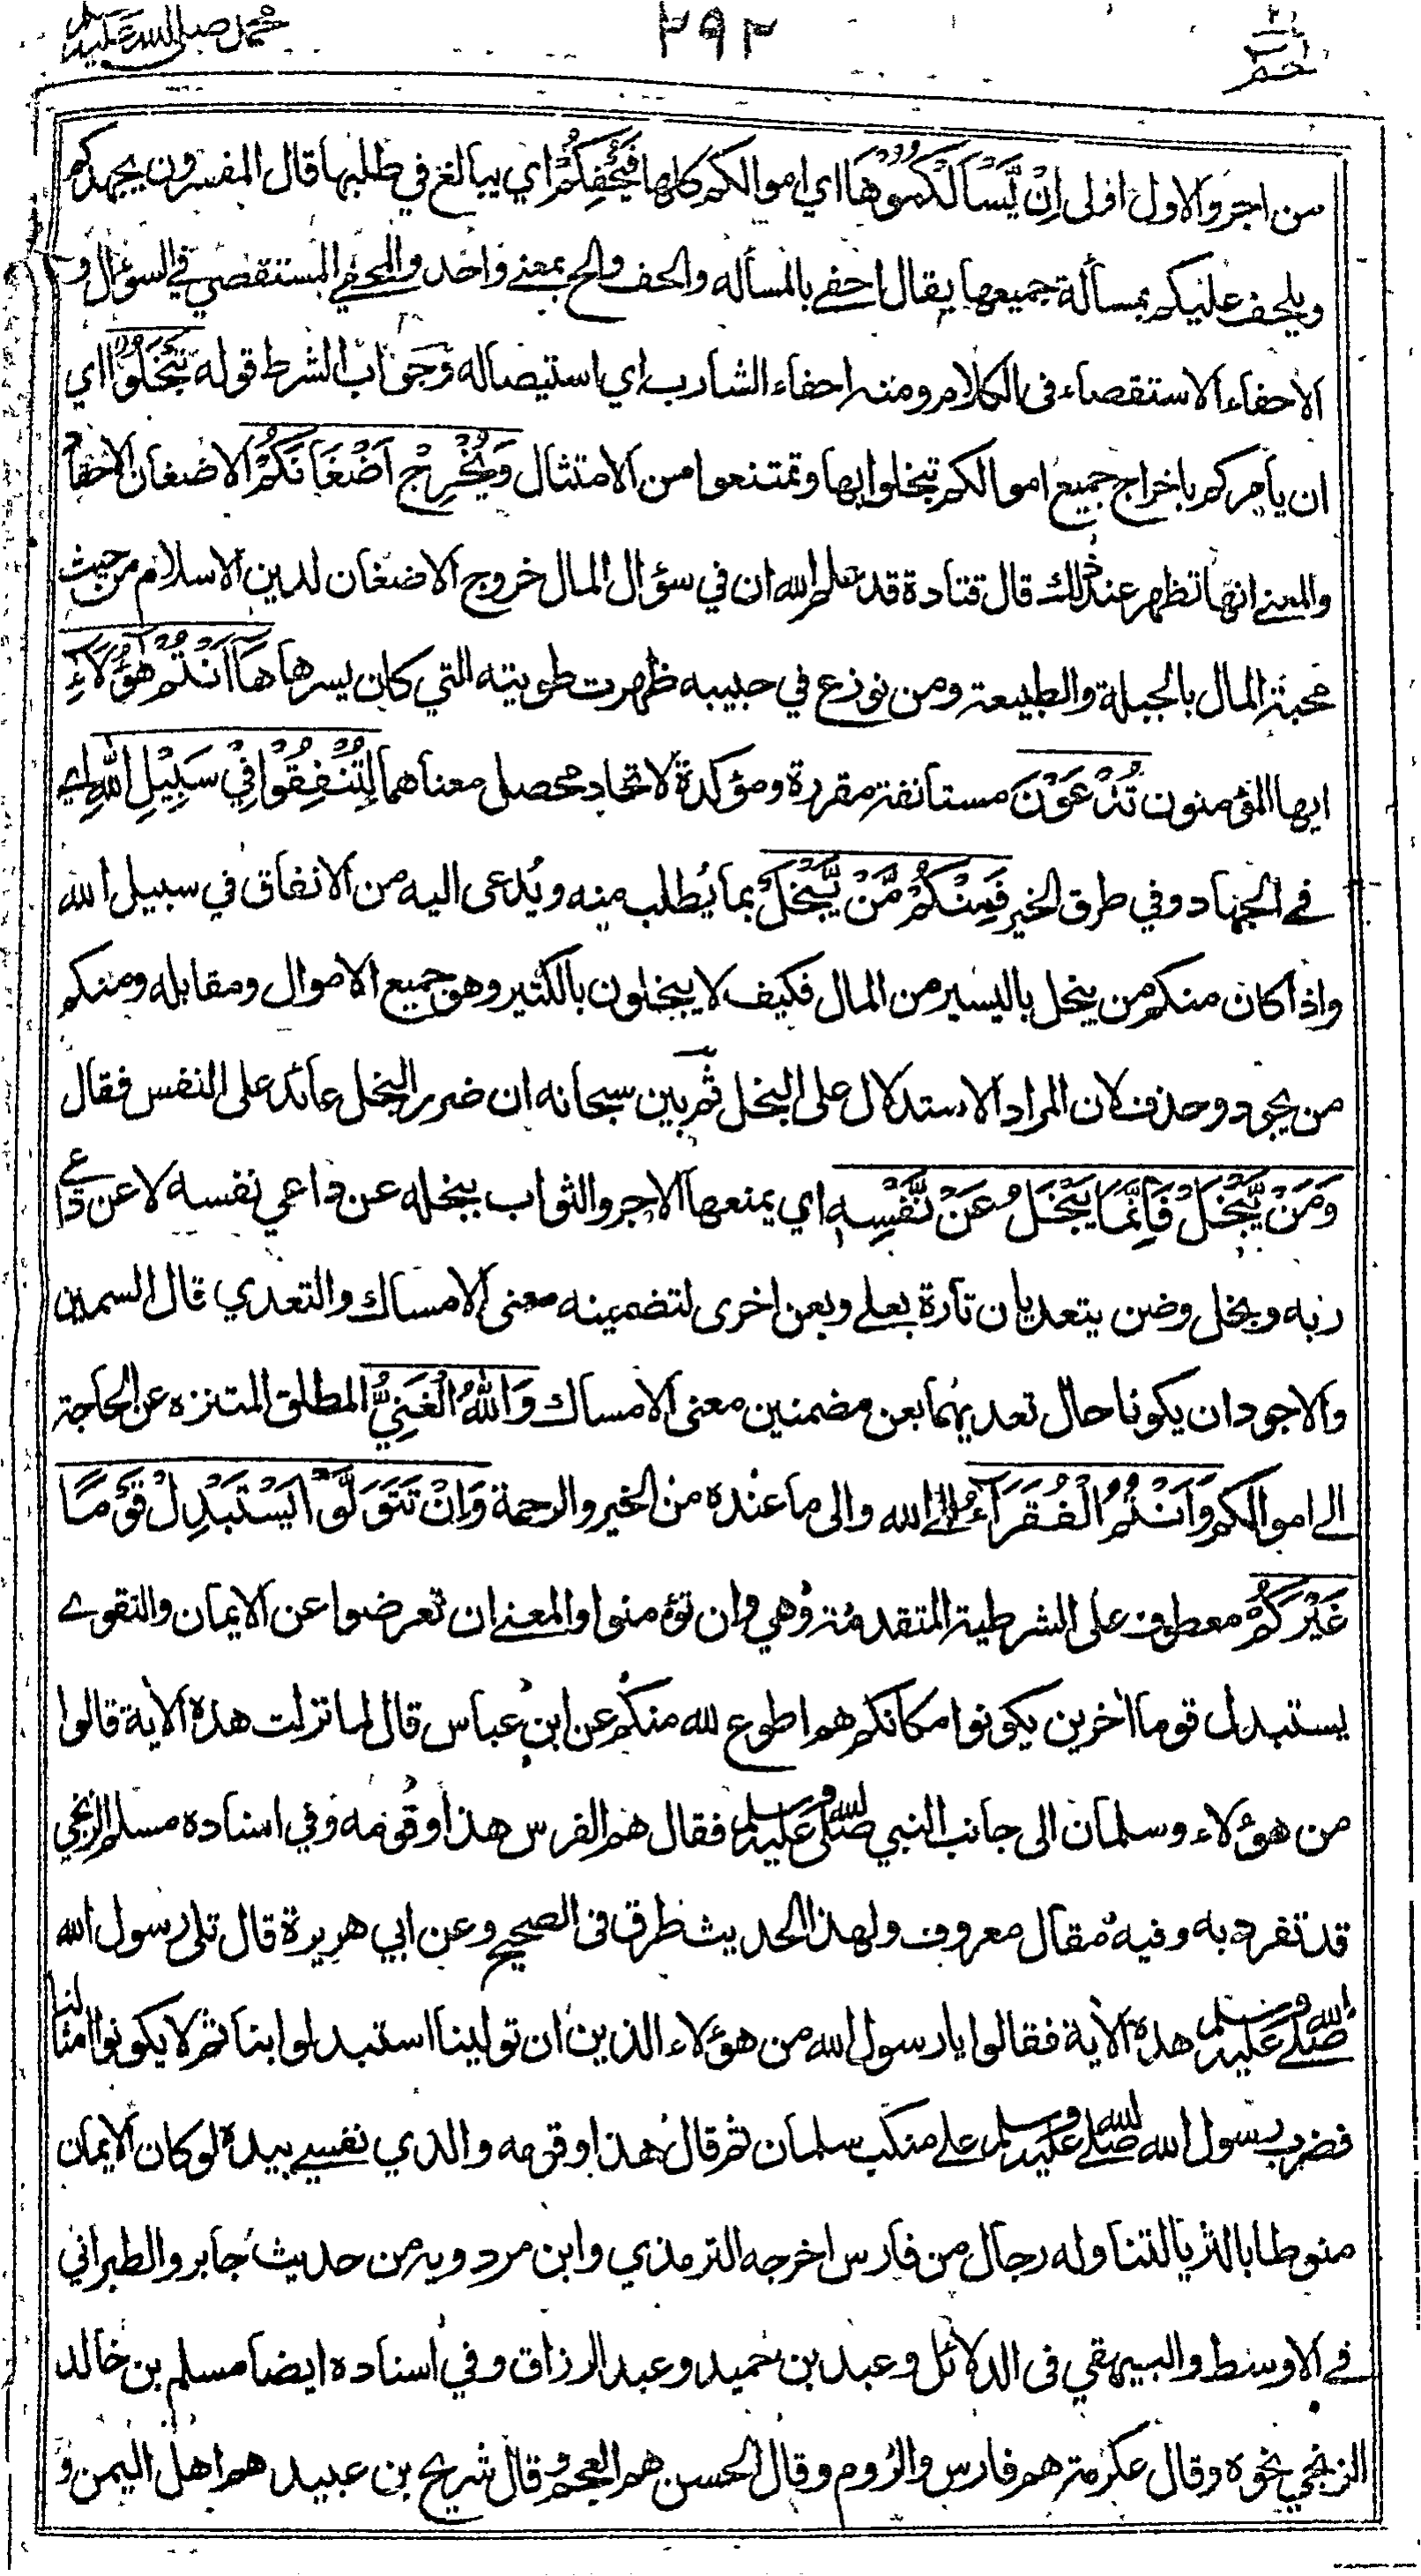 حم ٢٦
٢٩٢
محمد صلى الله عليه وسلم
من اجر والاول اولى اِنْ يَّسْاَلْكُمُوْهَا اي اموالكم كلها فَيُحْفِكُمْ اي يبالغ في طلبها قال المفسرون يجهدكم
ويلحف عليكم بمسألة جميعها يقال احفى بالمسأله والحف والح بمعنى واحد والمحفى المستقصي في السؤال و
الاحفاء الاستقصاء فى الكلام ومنه احفاء الشارب اي استيصاله وجواب الشرط قوله تَبْخَلُوْا اي
ان يأمركم باخراج جميع اموالكم تبخلوا بها وتمتنعوا من الامتثال وَيُخْرِجْ اَضْغَانَكُمْ الاضغان الاحقاد
والمعنى انها تظهر عند ذلك قال قتادة قد علم الله ان في سؤال المال خروج الاضغان لدين الاسلام من حيث
محبة المال بالجبلة والطبيعة ومن نوزع في حبيبه ظهرت طويته التي كان يسرها هَاۤاَنْتُمْ هٰۤؤُلَاۤءِ
ايها المؤمنون تُدْعَوْنَ مستانفة مقررة ومؤكدة لاتحاد محصل معناهما لِتُنْفِقُوْا فِيْ سَبِيْلِ اللّٰهِ اي
في الجهاد وفي طرق الخير فَمِنْكُمْ مَّنْ يَّبْخَلُ بما يُطلب منه ويُدعى اليه من الانفاق في سبيل الله
واذا كان منكم من يبخل باليسير من المال فكيف لا يبخلون بالكثير وهو جميع الاموال ومقابله ومنكم
من يجود وحذف لان المراد الاستدلال على البخل ثم بين سبحانه ان ضرر البخل عائد على النفس فقال
وَمَنْ يَّبْخَلْ فَاِنَّمَا يَبْخَلُ عَنْ نَّفْسِهٖ اي يمنعها الاجر والثواب ببخله عن داعي نفسه لا عن داعي
ربه وبخل وضن يتعديان تارة بعلى وبعن اخرى لتضمينه معنى الامساك والتعدي قال السمين
والاجود ان يكونا حال تعديهما بعن مضمنين معنى الامساك وَاللّٰهُ الْغَنِيُّ المطلق المتنزه عن الحاجة
الى اموالكم وَاَنْتُمُ الْفُقَرَاۤءُ الى الله والى ما عنده من الخير والرحمة وَاِنْ تَتَوَلَّوْا يَسْتَبْدِلْ قَوْمًا
غَيْرَكُمْ معطوف على الشرطية المتقدمة وهي وان تؤمنوا والمعنى ان تعرضوا عن الايمان والتقوى
يستبدل قوما اخرين يكونوا مكانكم هم اطوع لله منكم عن ابن عباس قال لما نزلت هذه الاية قالوا
من هؤلاء وسلمان الى جانب النبي صلى الله عليه وسلم فقال هم الفرس هذا وقومه وفي اسناده مسلم الزنجي
قد تفرد به وفيه مقال معروف ولهذا الحديث طرق فى الصحيح وعن ابي هريرة قال تلى رسول الله
صلى الله عليه وسلم هذه الاية فقالوا يا رسول الله من هؤلاء الذين ان تولينا استبدلوا بنا ثم لا يكونوا امثالنا
فضرب رسول الله صلى الله عليه وسلم على منكب سلمان ثم قال هذا وقومه والذي نفسي بيده لو كان الايمان
منوطا بالثريا لتناوله رجال من فارس اخرجه الترمذي وابن مردويه من حديث جابر والطبراني
في الاوسط والبيهقي فى الدلائل وعبد بن حميد وعبد الرزاق وفي اسناده ايضا مسلم بن خالد
الزنجي نحوه وقال عكرمة هم فارس والروم وقال الحسن هم العجم وقال شريح بن عبيد هم اهل اليمن و